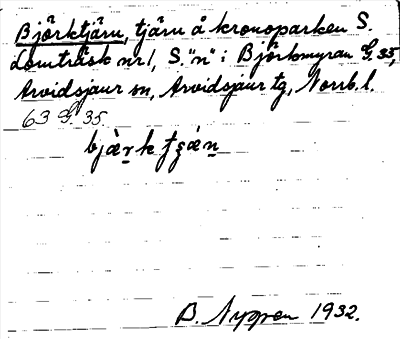 Björktjärn, tjärn å kronoparken S.
Lomträsk nr 1, S. "n" i Björkmyran G. 35,
Arvidsjaur sn, Arvidsjaur tg, Norrb. l.
63 G. 35.
B. Nygren 1932.